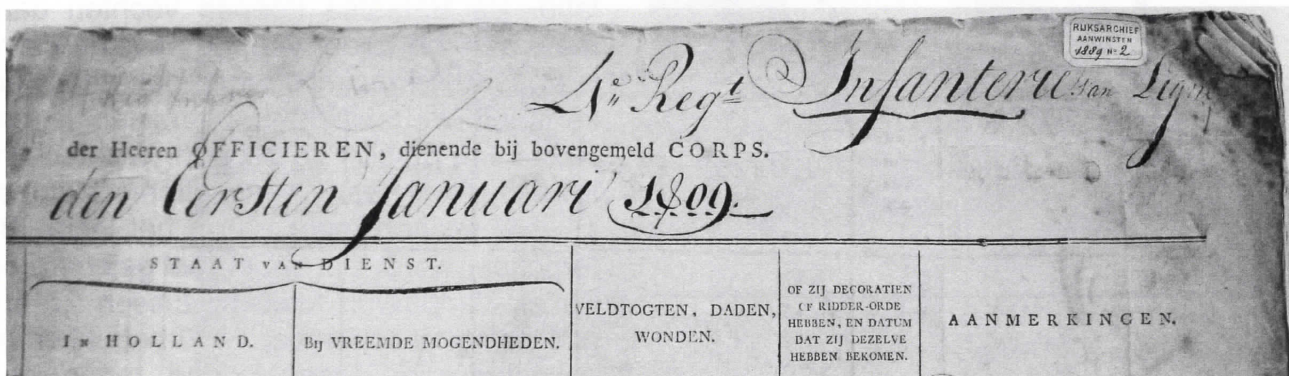 RIJKSARCHIEF
AANWINSTEN
1889 No 2
4e Regt Infanterie van Ligne
der Heeren OFFICIEREN, dienende bij bovengemeld CORPS.
den Eersten Januari 1809.
STAAT VAN DIENST.
IN HOLLAND.
Bij VREEMDE MOGENDHEDEN.
VELDTOGTEN, DADEN,
WONDEN.
OF ZIJ DECORATIEN
OF RIDDER-ORDE
HEBBEN, EN DATUM
DAT ZIJ DEZELVE
HEBBEN BEKOMEN.
AANMERKINGEN.